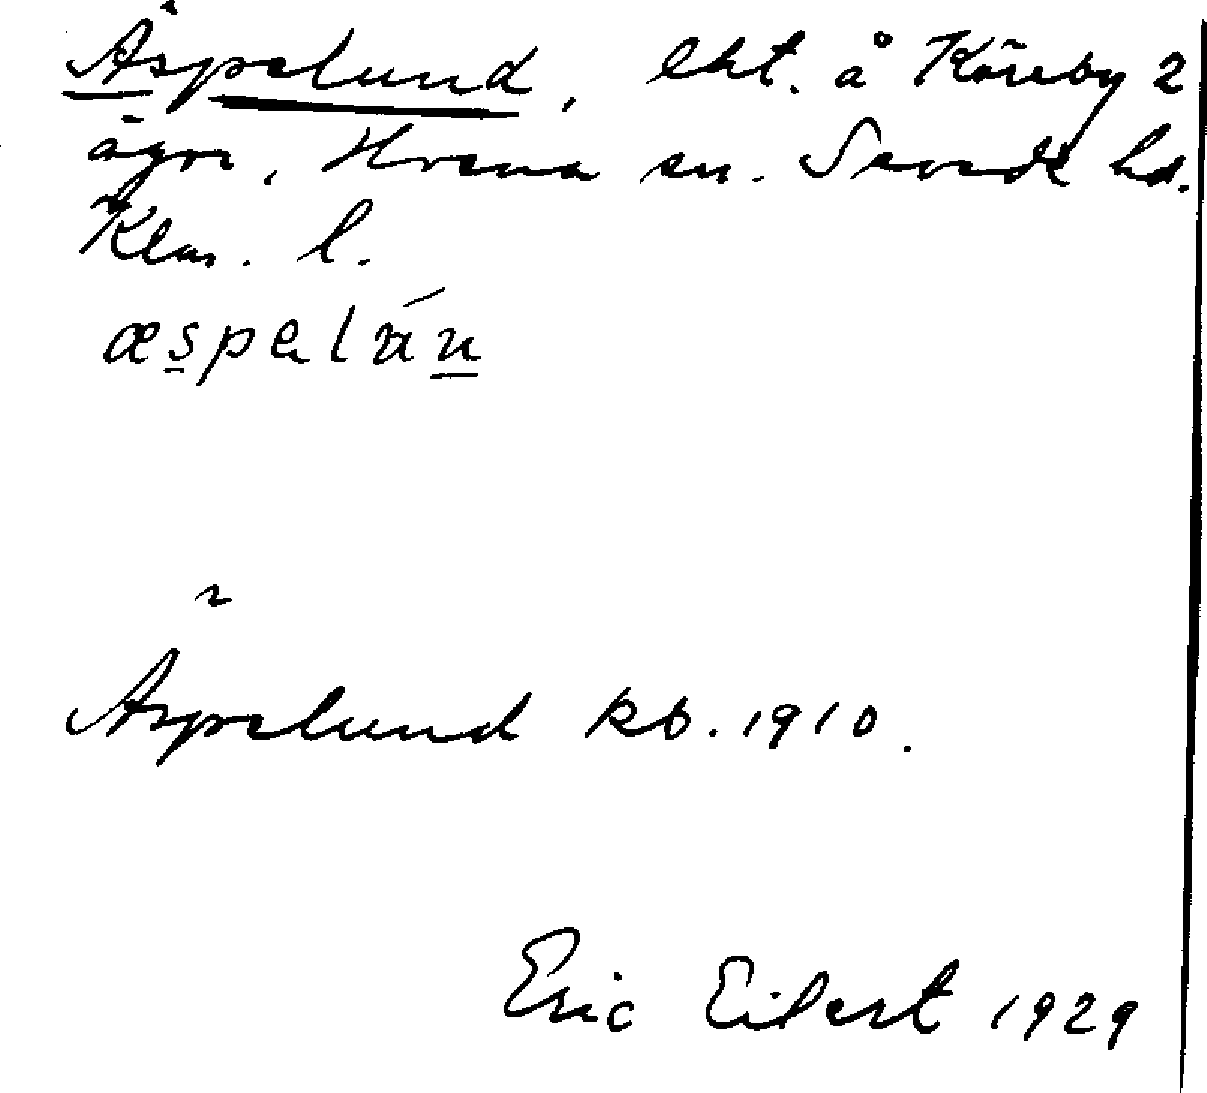 Äspelund, lht. å Käreby 2
ägor, Hvena sn. Sevede hd.
Klm. l.
æspelún
Äspelund kb. 1910.
Eric Eilert 1929